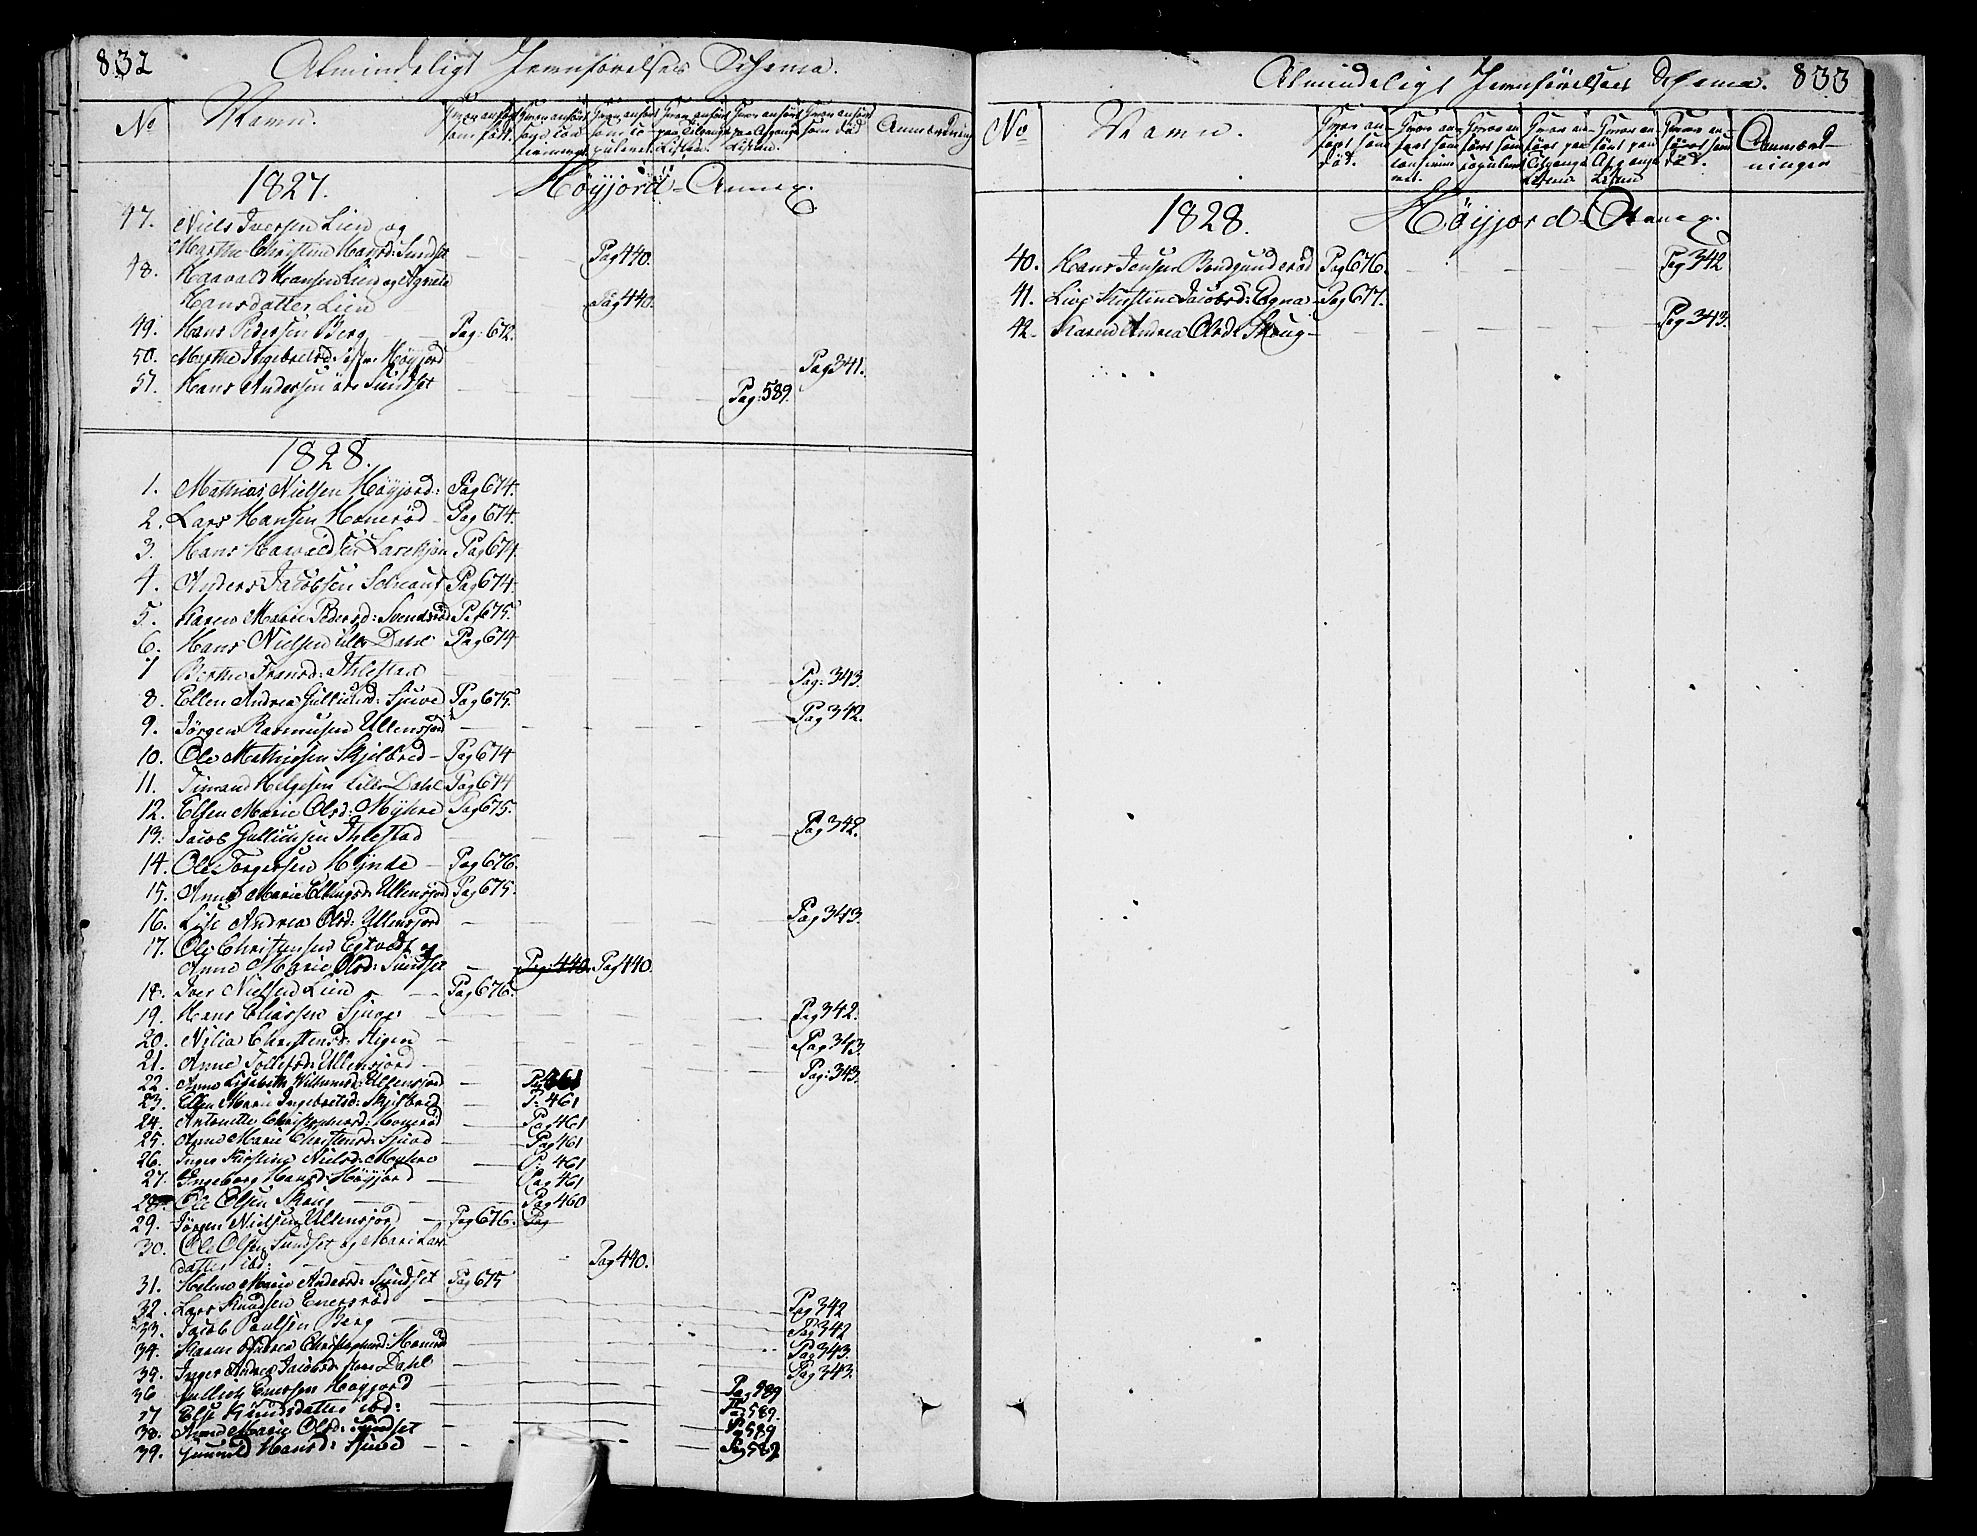 832
Almindeligt Jevnførelses Schema.
No
Navn.
Hvor anført som født.
Hvor anført som confirmeret
Hvor anført som copuleret
Hvor anført paa Tilgangs Listen
Hvor anført paa Afgangs Listen.
Hvor anført som død
Anmærkning
1827.
Høyjord Annex.
47. Niels Iversen Lien og
Marthe Christine Hansd: Sundset Pag 440.
48. Haavald Hansen Lien og Agnete
Hansdatter Lien Pag 440.
49. Hans Pedersen Berg Pag: 672.
50. Marthe Ingebretsd: Høyjord Pag 341.
51. Hans Andersen Sundset Pag: 589.
1828.
1. Mathias Nielsen Høyjord: Pag 674.
2. Lars Hansen Honerød Pag 674.
3. Hans Haavaldsen Pag 674
4. Anders Jacobsen Pag 674.
5. Karen Marie Pedersd: Svendsrød Pag 675.
6. Hans Nielsen Lille Dahl Pag 674
7 Berthe Fransd: Ihlestad Pag: 343.
8. Ellen Andrea Gulliksd: Sjuve Pag 675.
9. Jørgen Rasmusen Ullensjord Pag 342.
10. Ole Mathissen Skjelbred Pag 674
11. Helgesen Lille Dahl Pag 674
12. Ellen Marie Olsd: Myhre Pag 675.
13. Jacob Gulliksen Ihlestad Pag 342.
14. Ole Torgersen Hynde Pag 676.
15. Anne Marie Ellingsd: Ullensjord Pag 675.
16. Lise Andrea Olsd: Ullensjord Pag 343.
17. Ole Christensen og
Anne Marie Olsd: Sundset Pag: 440. Pag 440.
18. Iver Nielsen Lien Pag 676.
19. Hans Eliassen Sjuve Pag 342.
20. Christensd: Stigen Pag 343.
21. Anne Tollefsd: Ullensjord Pag: 343.
22. Anne Lisabeth Ullensjord Pag 461
23. Ellen Marie Ingebretsd: Skjelbred P: 461
24. Antonette Christophersd: Honerød Pag 461
25. Anne Marie Christensd: Sjuve Pag 461
26. Inger Kirstine Nielsd: P. 461
27. Ingeborg Hansd: Høyjord Pag 461
28. Ole Olsen Skoug Pag 460
29. Jørgen Nielsen Ullensjord Pag 676. Pag
30. Ole Olsen Sundset og Mari Lars-
datter ibd: Pag 440.
31. Helene Marie Andersd: Sundset Pag 675
32. Lars Knudsen Enersrød Pag 342
33. Jacob Paulsen Berg Pag 342
34. Karen Andrea Christophersd: Honerød Pag 343.
35. Inger Andrea Jacobsd: Store Dahl Pag 343.
36 Gullich Høyjord Pag 589
37 Else Knudsdatter ibd: Pag 589.
38. Anne Marie Olsd: Sundset Pag 589
39. Gunnild Hansd: Sjuve Pag 589
Almindeligt Jevnførelses Schema. 833
No
Navn.
Hvor anført som fød.
Hvor anført som confirmeret.
Hvor anført som copuleret
Hvor anført paa Tilgangs Listen
Hvor anført paa Afgangs Listen
Hvor anført som død.
Anmærkninger
1828.
Høyjord Annex.
40. Hans Jensen Pag 676. Pag 342
41. Live Kirstine Jacobsd: Pag 677.
42. Karen Andrea Olsd: Skoug Pag 343.